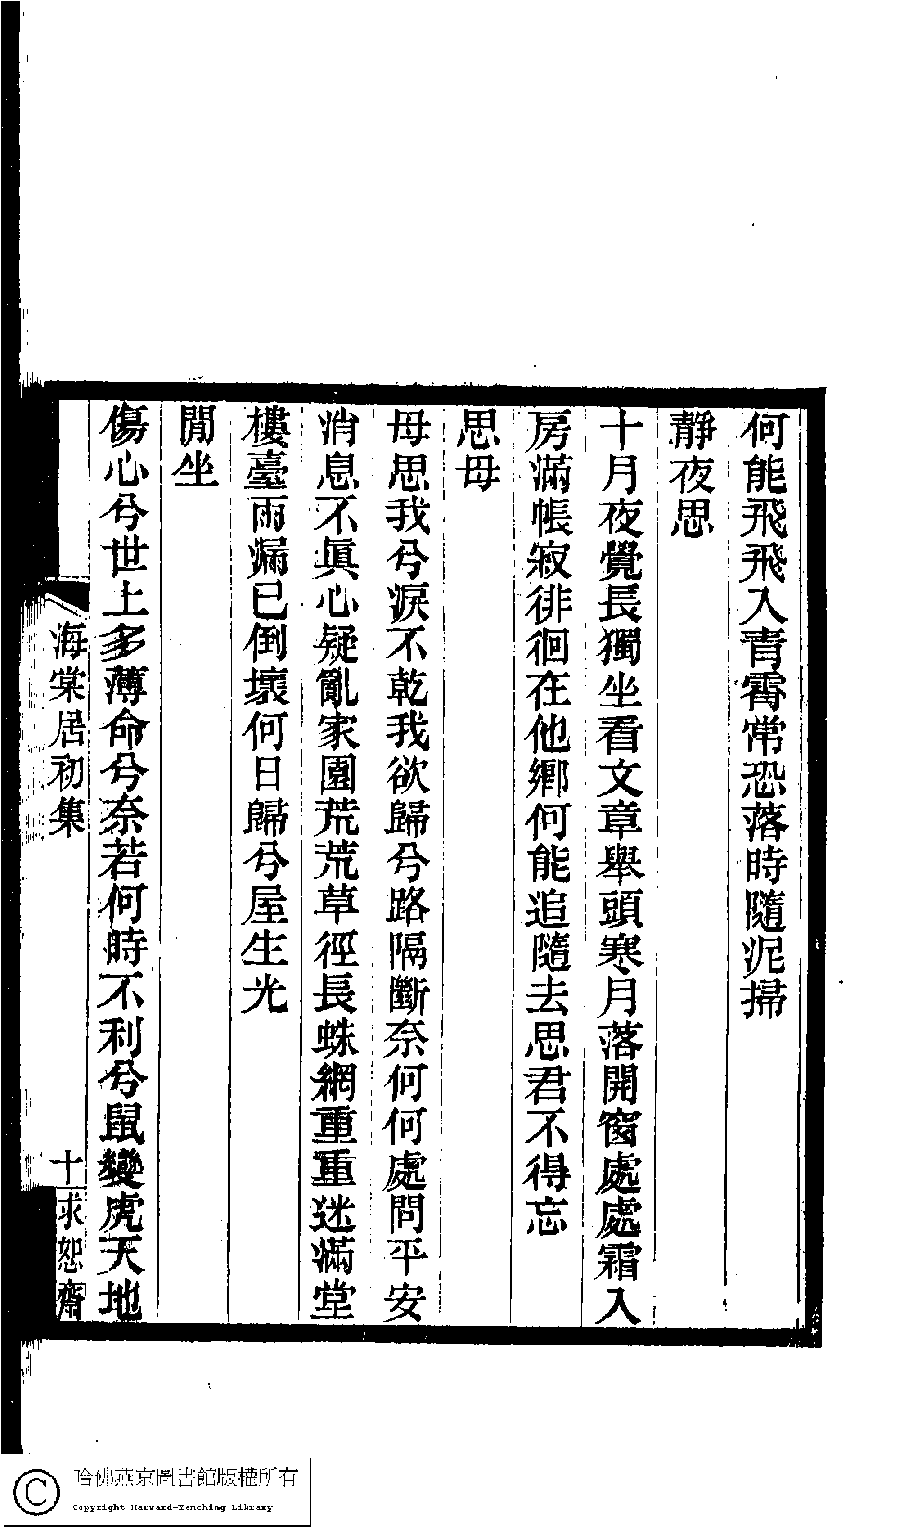 何能飛飛入青霄常恐落時隨泥掃
靜夜思
十月夜覺長獨坐看文章舉頭寒月落開窗處處霜入
房滿帳寂徘徊在他鄉何能追隨去思君不得忘
思母
母思我兮淚不乾我欲歸兮路隔斷奈何何處問平安
消息不眞心疑亂家園荒荒草徑長蛛網重重迷滿堂
樓臺雨漏已倒壞何日歸兮屋生光
閒坐
傷心兮世上多薄命兮奈若何時不利兮鼠變虎天地
海棠居初集 十 求恕齋
哈佛燕京圖書館版權所有
Copyright Harvard-Yenching Library